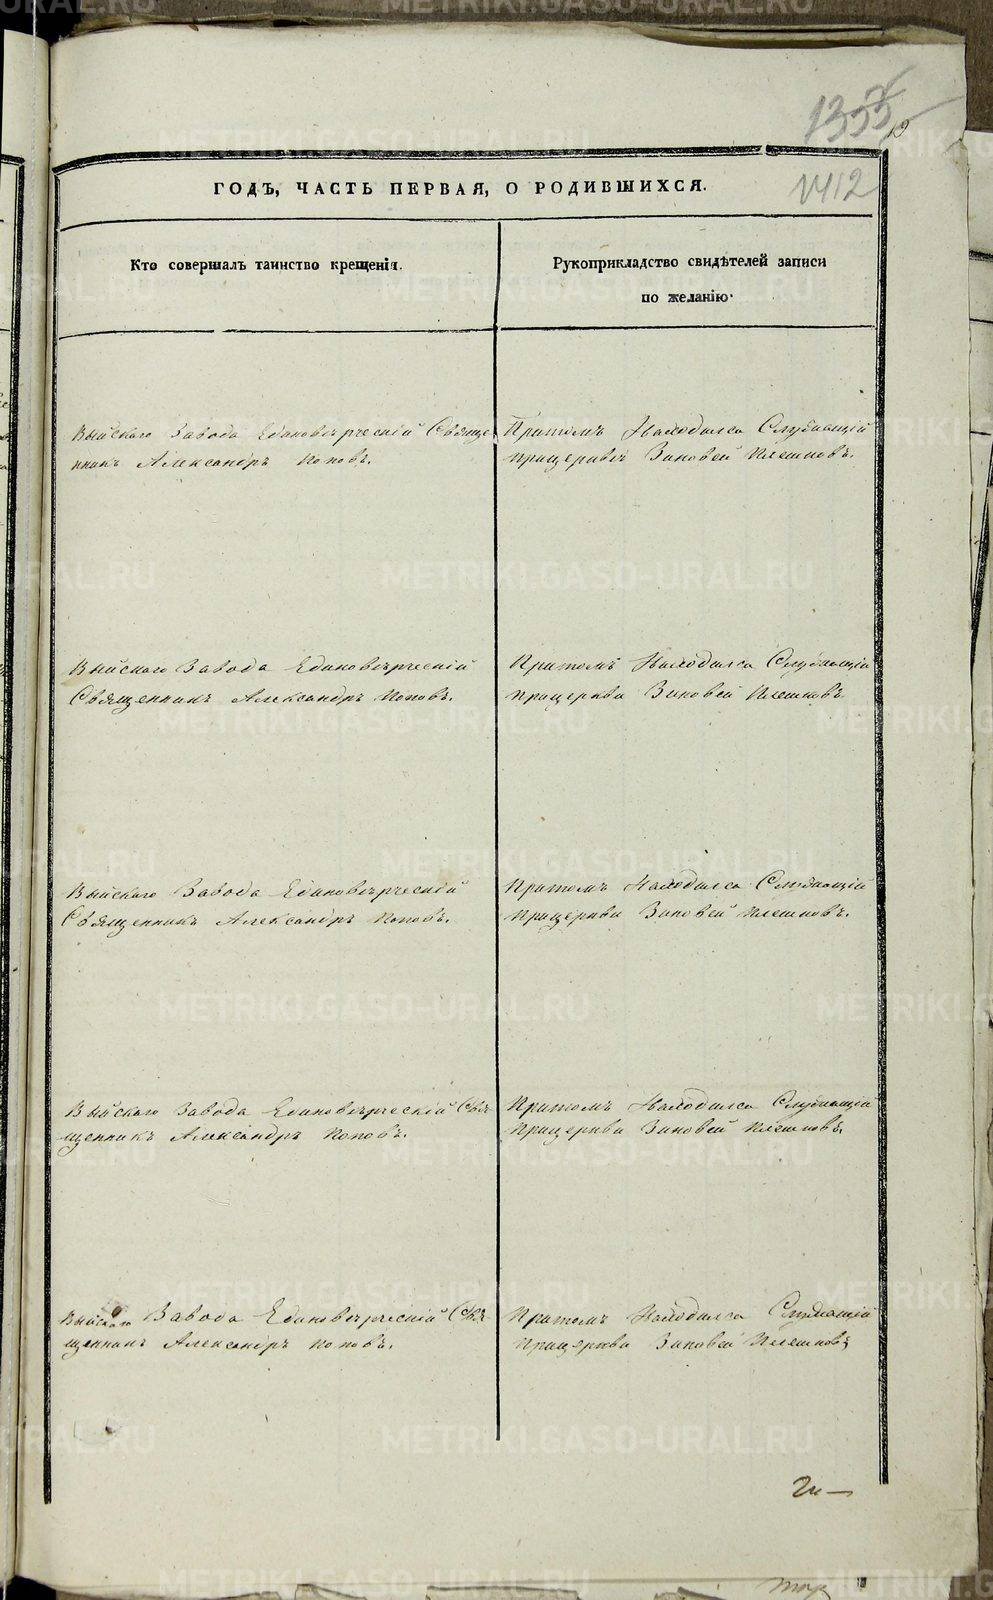 1355
19
ГОДЪ, ЧАСТЬ ПЕРВАЯ, О РОДИВШИХСЯ.
1412
Кто совершалъ таинство крещенія.
Рукоприкладство свидѣтелей записи
по желанію.
Выйскаго Завода Единовѣрческій Свяще
нникъ Александръ Поповъ.
Притомъ Находился Служающій
прицерквѣ Зиновей Плешковъ.
Выйскаго Завода Единовѣрческій
Священникъ Александръ Поповъ.
Притомъ Находился Служающій
прицеркви Зиновей Плешковъ
Выйскаго Завода Единовѣрческій
Священникъ Александръ Поповъ.
Притомъ Находился Служающій
прицеркви Зиновей Плешковъ.
Выйскаго Завода Единовѣрческій Свя
щенникъ Александръ Поповъ.
Притомъ Находился Служающій
прицеркви Зиновей Плешковъ.
Выйскаго Завода Единовѣрческій Свя
щенникъ Александръ Поповъ.
Притомъ Находился Служающій
прицеркви Зиновей Плешковъ
METRIKI.GASO-URAL.RU